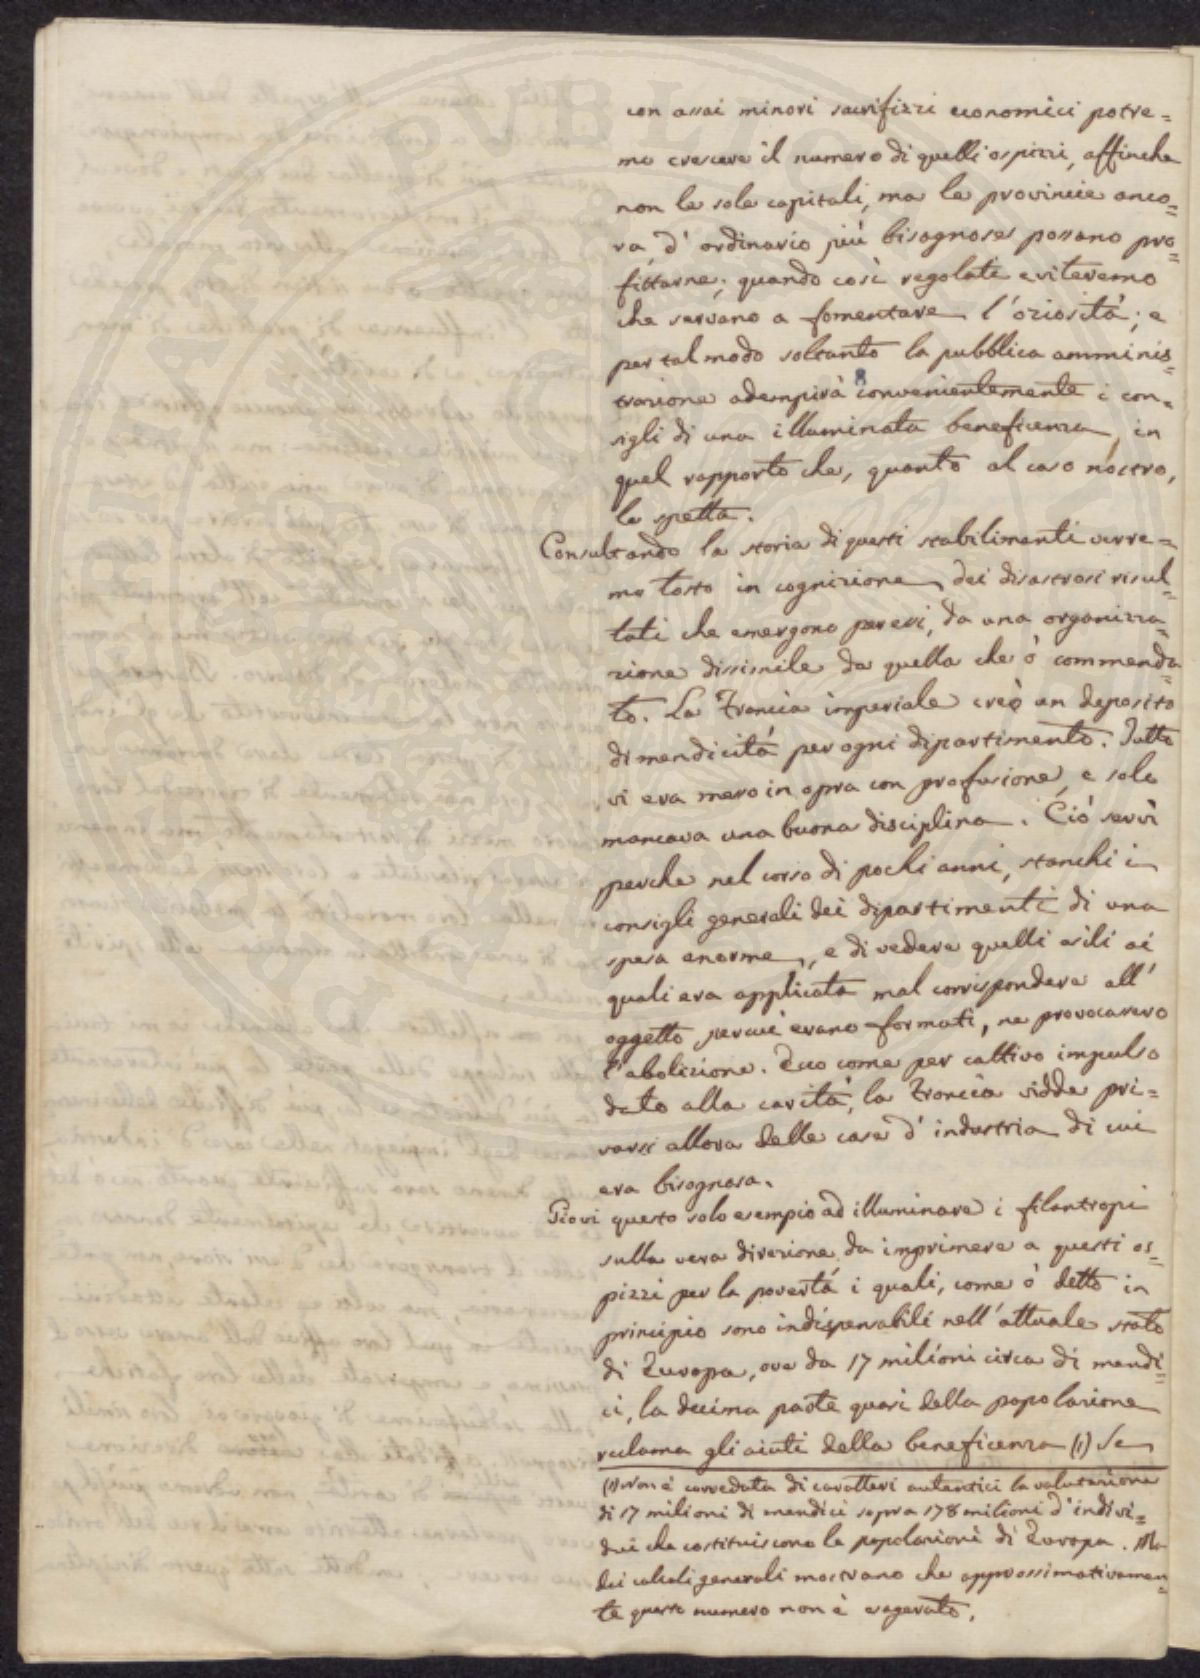 con assai minori sacrifizzi economici potre=
mo crescere il numero di quelli ospizzi, affinche
non le sole capitali, ma le provincie anco=
ra, d'ordinario più bisognose, possano pro=
fittarne; quando così regolati eviteremo
che servano a fomentare l'oziosità; e
per tal modo soltanto la pubblica amminis=
trazione adempirà convenientemente i con=
sigli di una illuminata beneficenza, in
quel rapporto che, quanto al caso nostro,
le spetta.
Consultando la storia di questi stabilimenti verre=
mo tosto in cognizione dei disastrosi risul=
tati che emergono per essi, da una organizza=
zione dissimile da quella che ò commenda=
to. La Francia imperiale creò un deposito
di mendicità per ogni dipartimento. Tutto
vi era messo in opra con profusione, e solo
mancava una buona disciplina. Ciò servì
perche nel corso di pochi anni, stanchi i
consigli generali dei dipartimenti di una
spesa enorme, e di vedere quelli asili ai
quali era applicata mal corrispondere all'
oggetto per cui erano formati, ne provocarono
l'abolizione. Ecco come per cattivo impulso
dato alla carità, la Francia vidde pri=
varsi allora delle case d'industria di cui
era bisognosa.
Giovi questo solo esempio ad illuminare i filantropi
sulla vera direzione da imprimere a questi os=
pizzi per la povertá i quali, come ò detto in
principio sono indispensabili nell'attuale stato
di Europa, ove da 17 milioni circa di mendi=
ci, la decima parte quasi della popolazione
reclama gli aiuti della beneficenza (1) Se
(1) Non è corredata di caratteri autentici la valutazione
di 17 milioni di mendici sopra 178 milioni d'indivi=
dui che costituiscono la popolazione di Europa. Ma
dei calcoli generali mostrano che approssimativamen=
te questo numero non è esagerato.